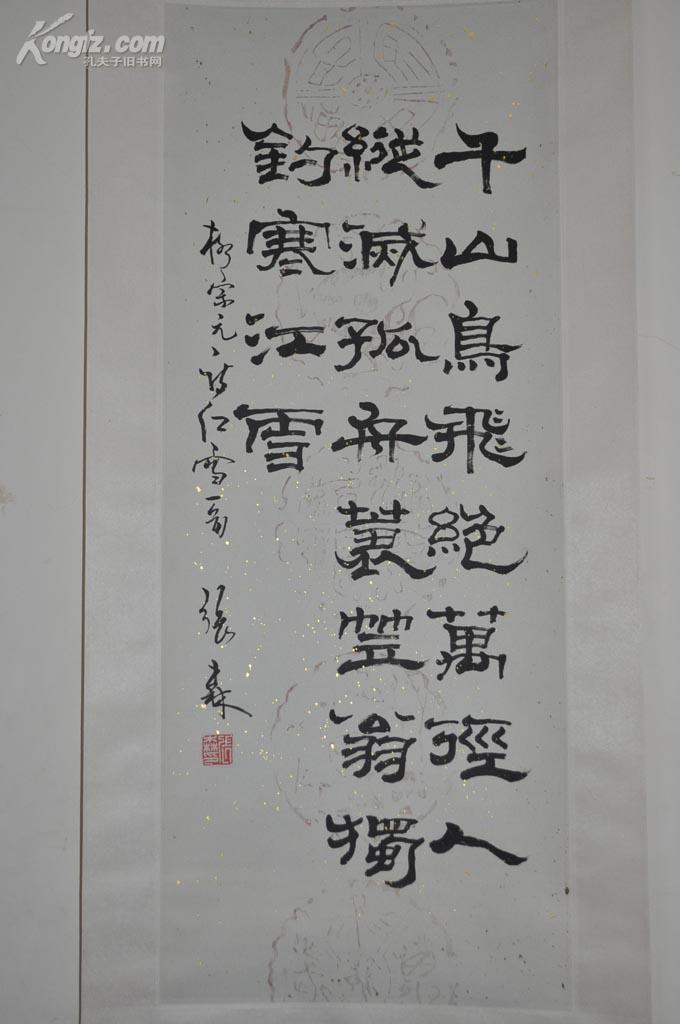 Kongfz.com
孔夫子旧书网
千山鳥飛絕萬徑人
縱滅孤舟蓑笠翁獨
釣寒江雪
柳宗元詩江雪一首 張森